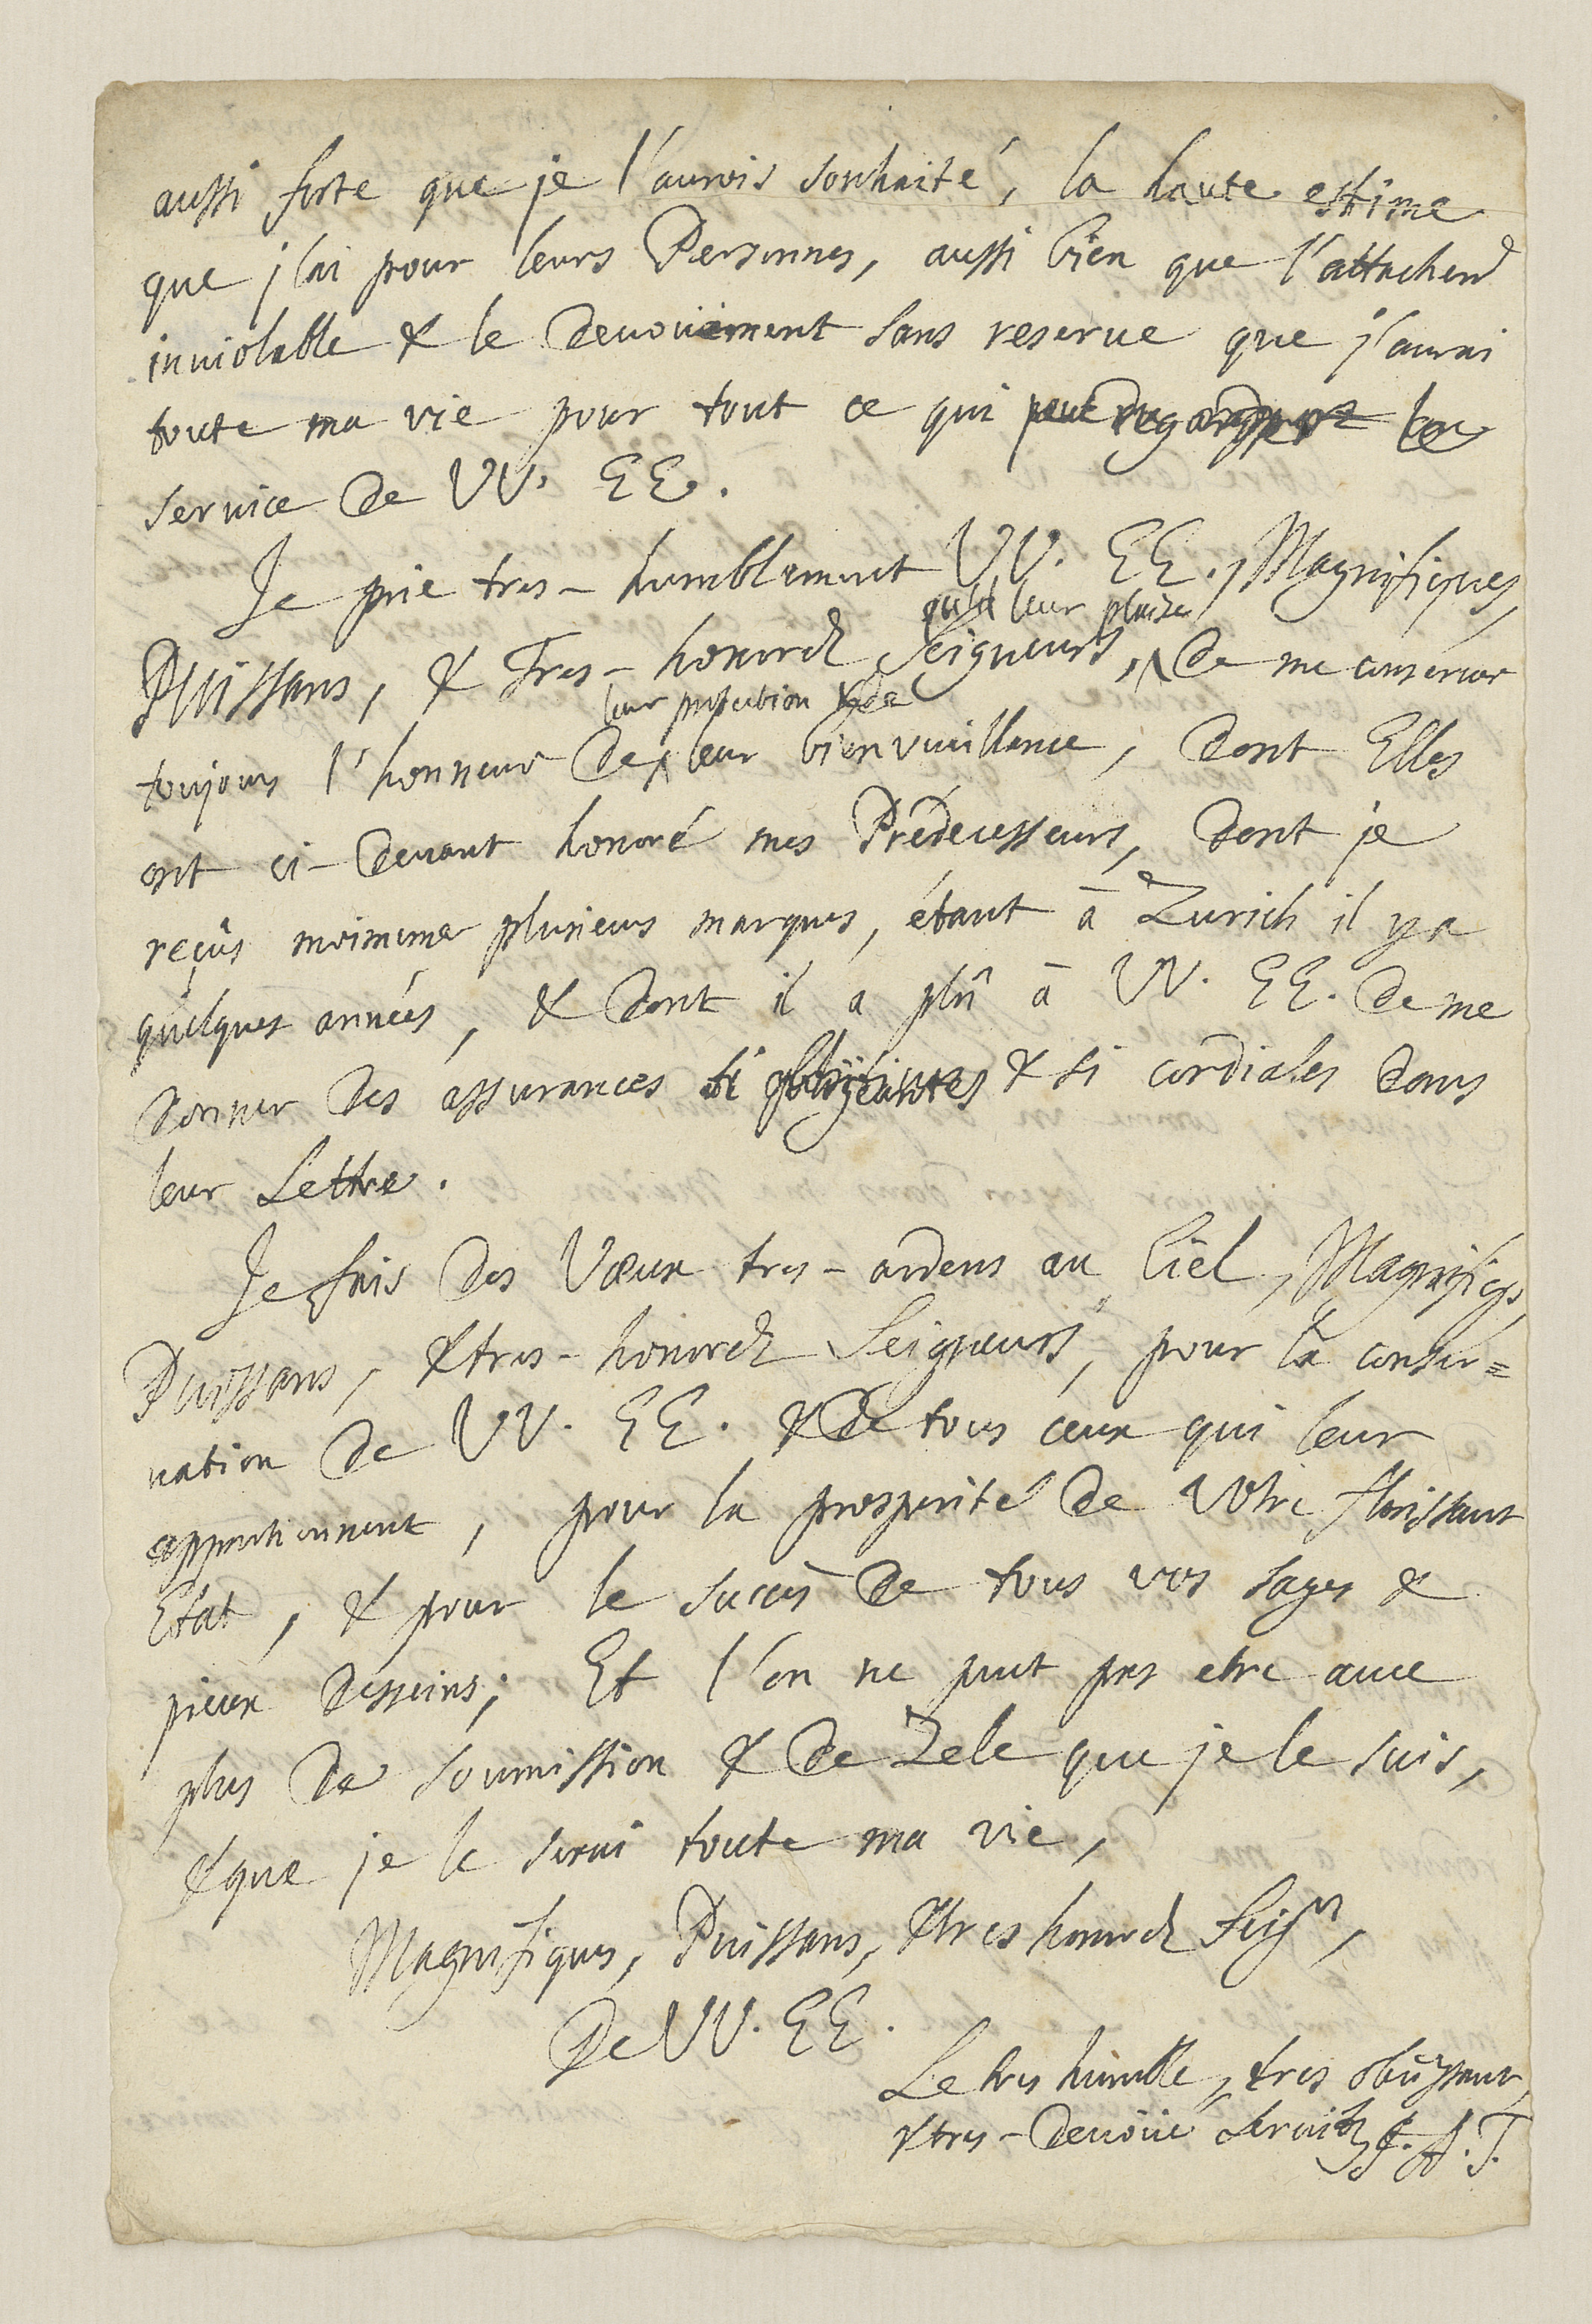 aussi forte que je l'aurois souhaité, la haute estime
que j'ai pour leurs Personnes, aussi bien que l'attachem̃t
inviolable & le devoüement sans reserve que j'aurai
toute ma vie pour tout ce qui peut regarder le
service de VV. EE.
Je prie tres-humblement VV. EE., Magnifiques,
qu'il leur plaise
Puissans, & Tres-honorez Seigneurs, de me conserver
leur protection & de
toujours l'honneur de leur bienvueillance, dont Elles
ont ci-devant honoré mes Prédecesseurs, dont je
reçûs moimeme plusieurs marques, étant à Zurich il y a
quelques années, & dont il a plû à VV. EE. de me
donner des assurances si obligeantes & si cordiales dans
leur Lettre.
Je fais des Vœux tres-ardens au Ciel, Magnifiqs,
Puissans, & tres-honorez Seigneurs, pour la conser=
vation de VV. EE. & de tous ceux qui leur
appartiennent, pour la prosperité de votre florissant
Etat, & pour le succès de tous vos sages &
pieux desseins; Et l'on ne peut pas etre avec
plus de soumission & de Zele que je le suis,
& que je le serai toute ma vie,
Magnifiques, Puissans, & tres honorez Seigrs,
De VV. EE.
Le tres humble, tres obeïssant,
& tres-devoüé Servitr J. A. T.